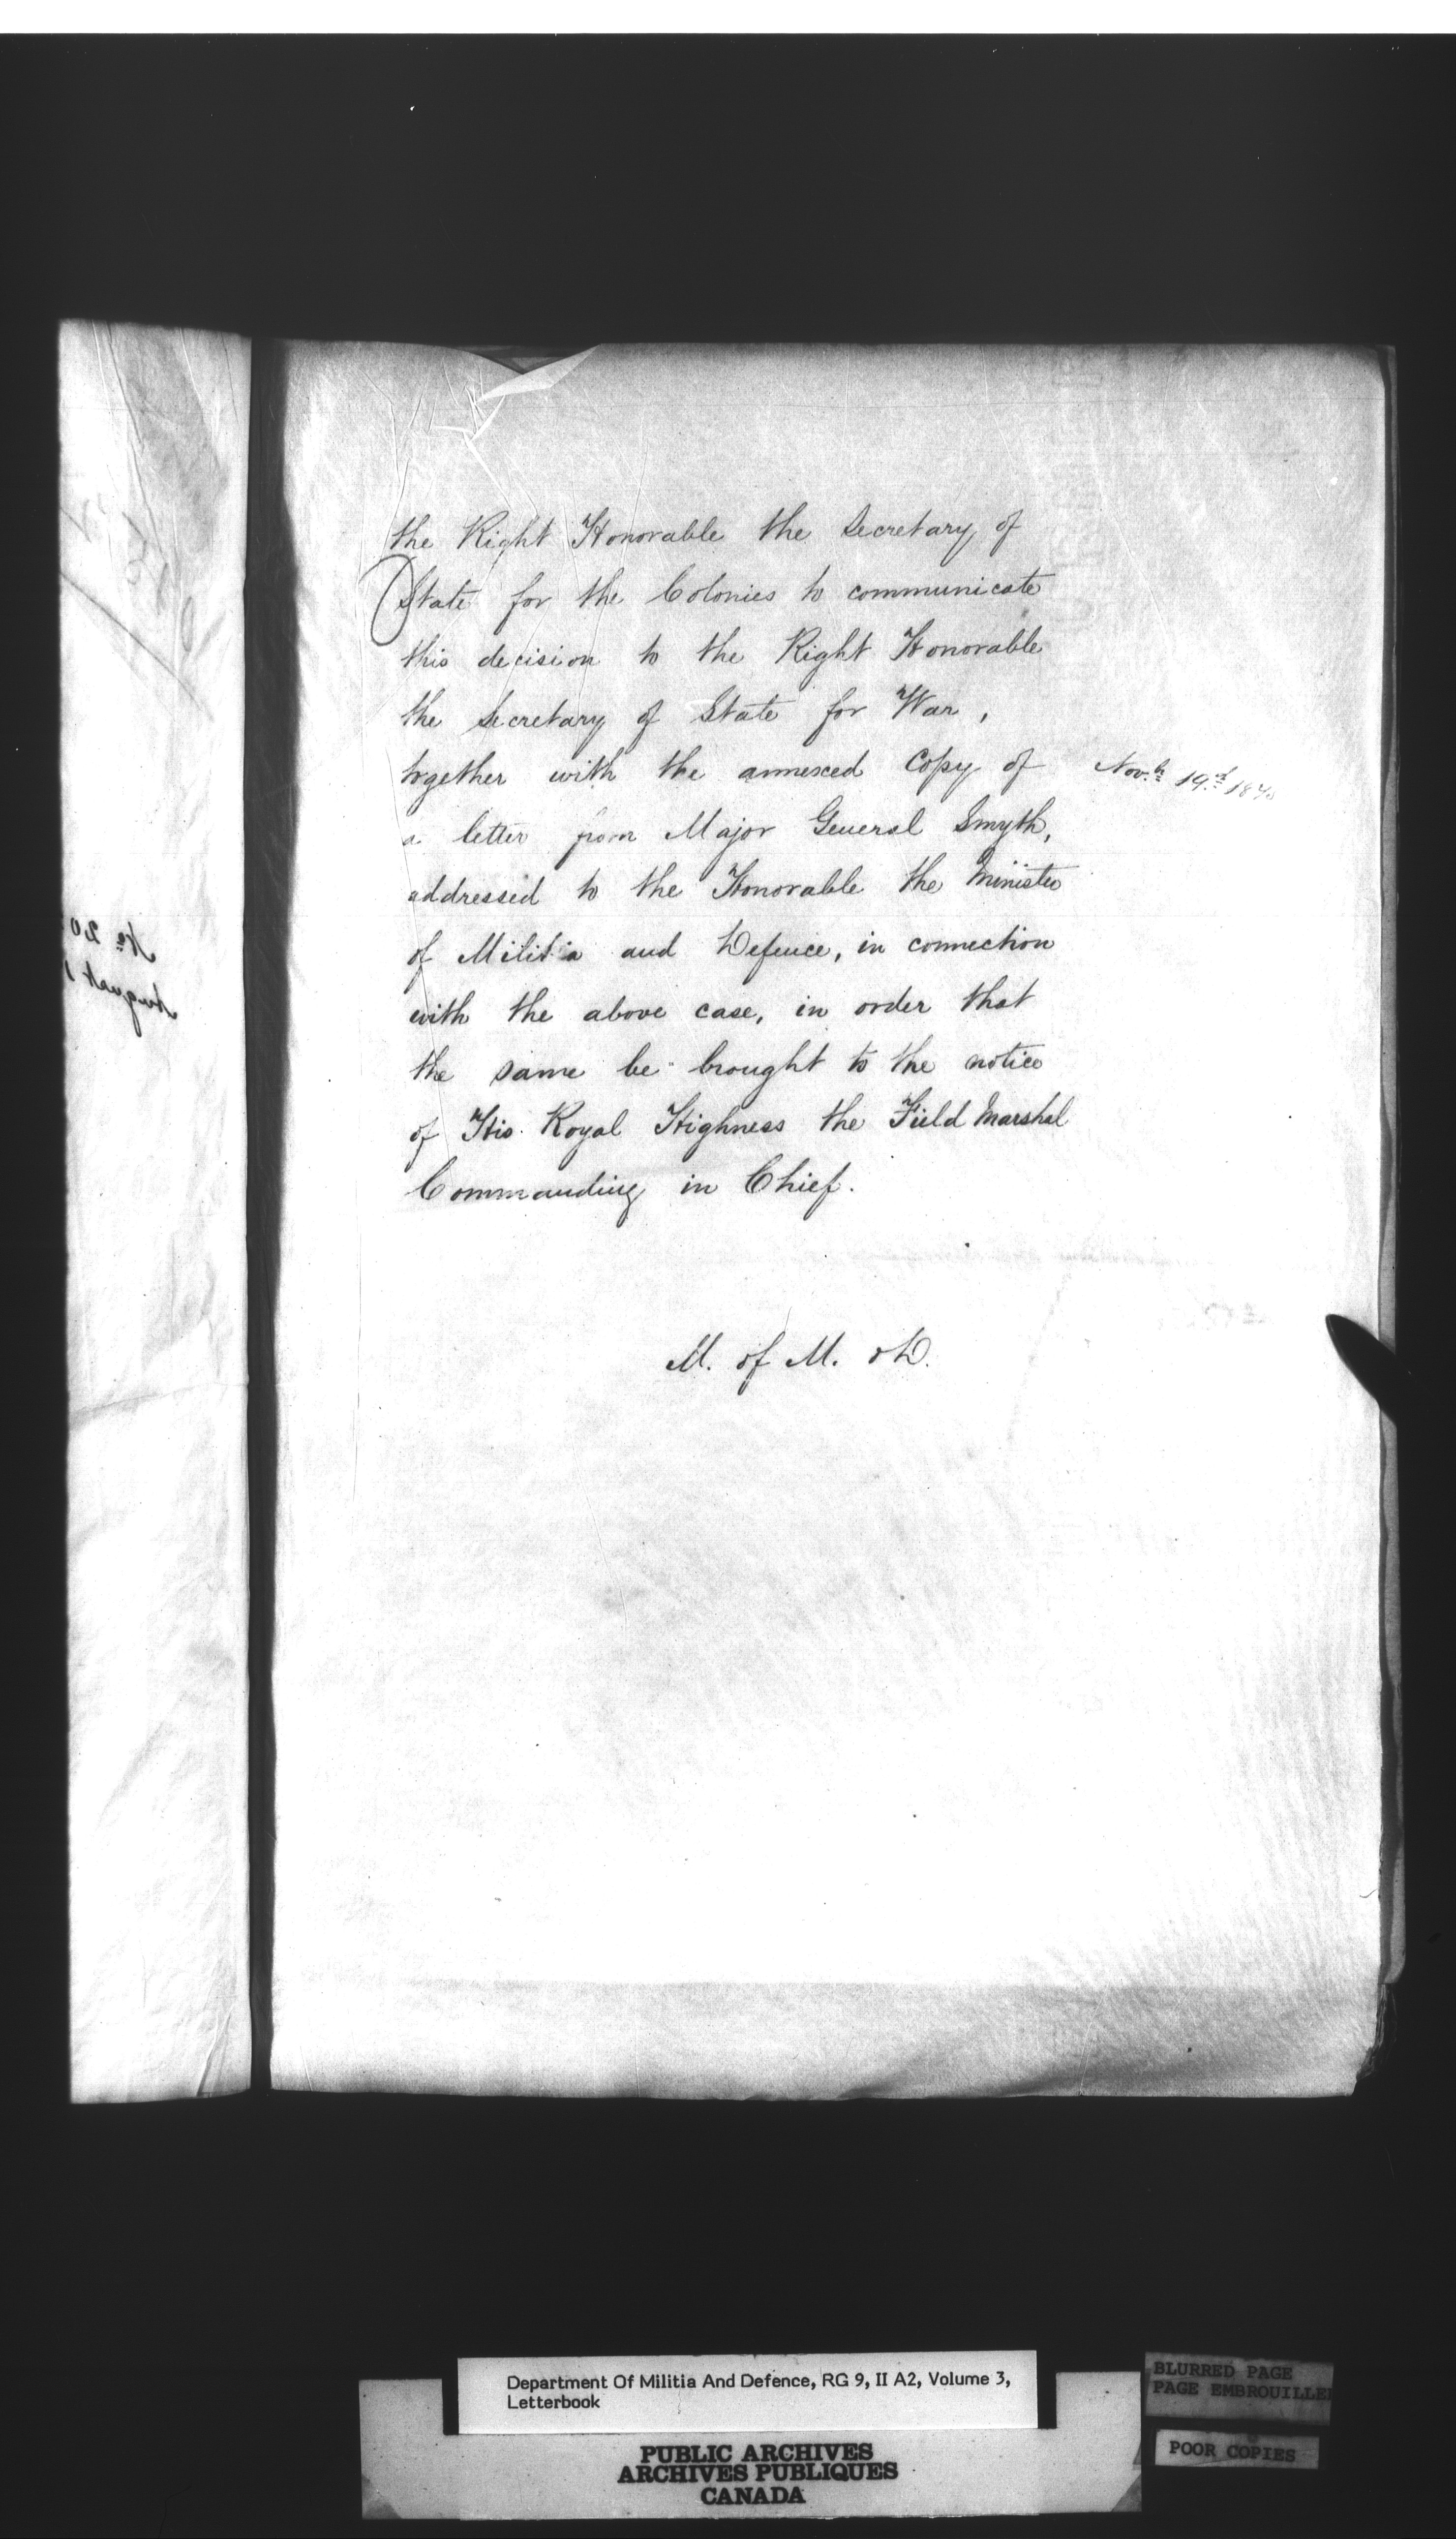 the Right Honorable the Secretary of
State for the Colonies to communicate
this decision to the Right Honorable
the Secretary of State for War,
together with the annexed Copy of
Nov.br 19.th
a letter from Major General Smyth,
addressed to the Honorable the Minister
of Militia and Defence, in connection
with the above case, in order that
the same be brought to the notice
of His Royal Highness the Field Marshal
Commanding in Chief.
M. of M. & D.
No 20
August 1
Department Of Militia And Defence, RG 9, II A2, Volume 3,
Letterbook
PUBLIC ARCHIVES
ARCHIVES PUBLIQUES
CANADA
BLURRED PAGE
PAGE EMBROUILLE
POOR COPIES